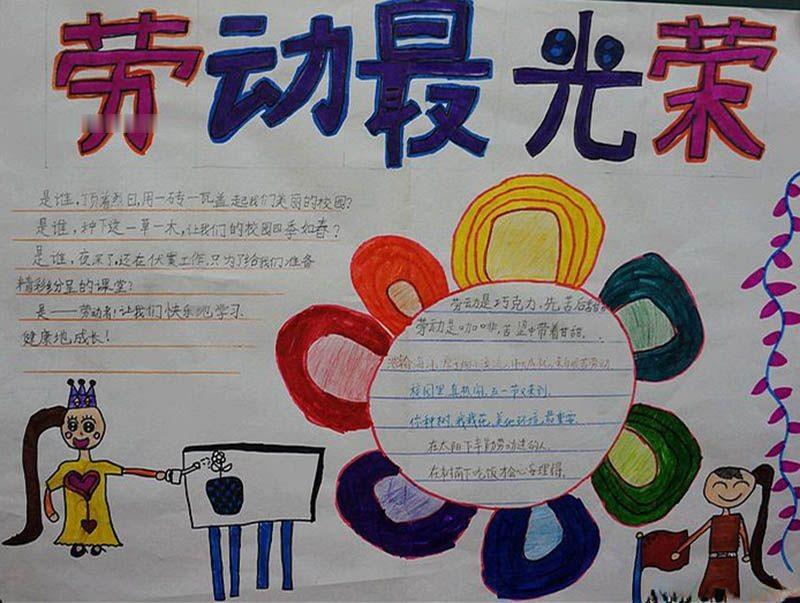 劳动最光荣
是谁，顶着烈日，用一砖一瓦盖起我们美丽的校园？
是谁，种下这一草一木，让我们的校园四季如春？
是谁，夜深了，还在伏案工作，只为了给我们准备
精彩纷呈的课堂？
是——劳动者！让我们快乐地学习
健康地成长！
劳动是巧克力，先苦后甜
劳动是咖啡，苦涩中带着甘甜．
校园里真热闹，五一节又来到．
你种树，我栽花，美化环境最重要．
在太阳下辛勤劳动过的人，
在树荫下吃饭才会心安理得．